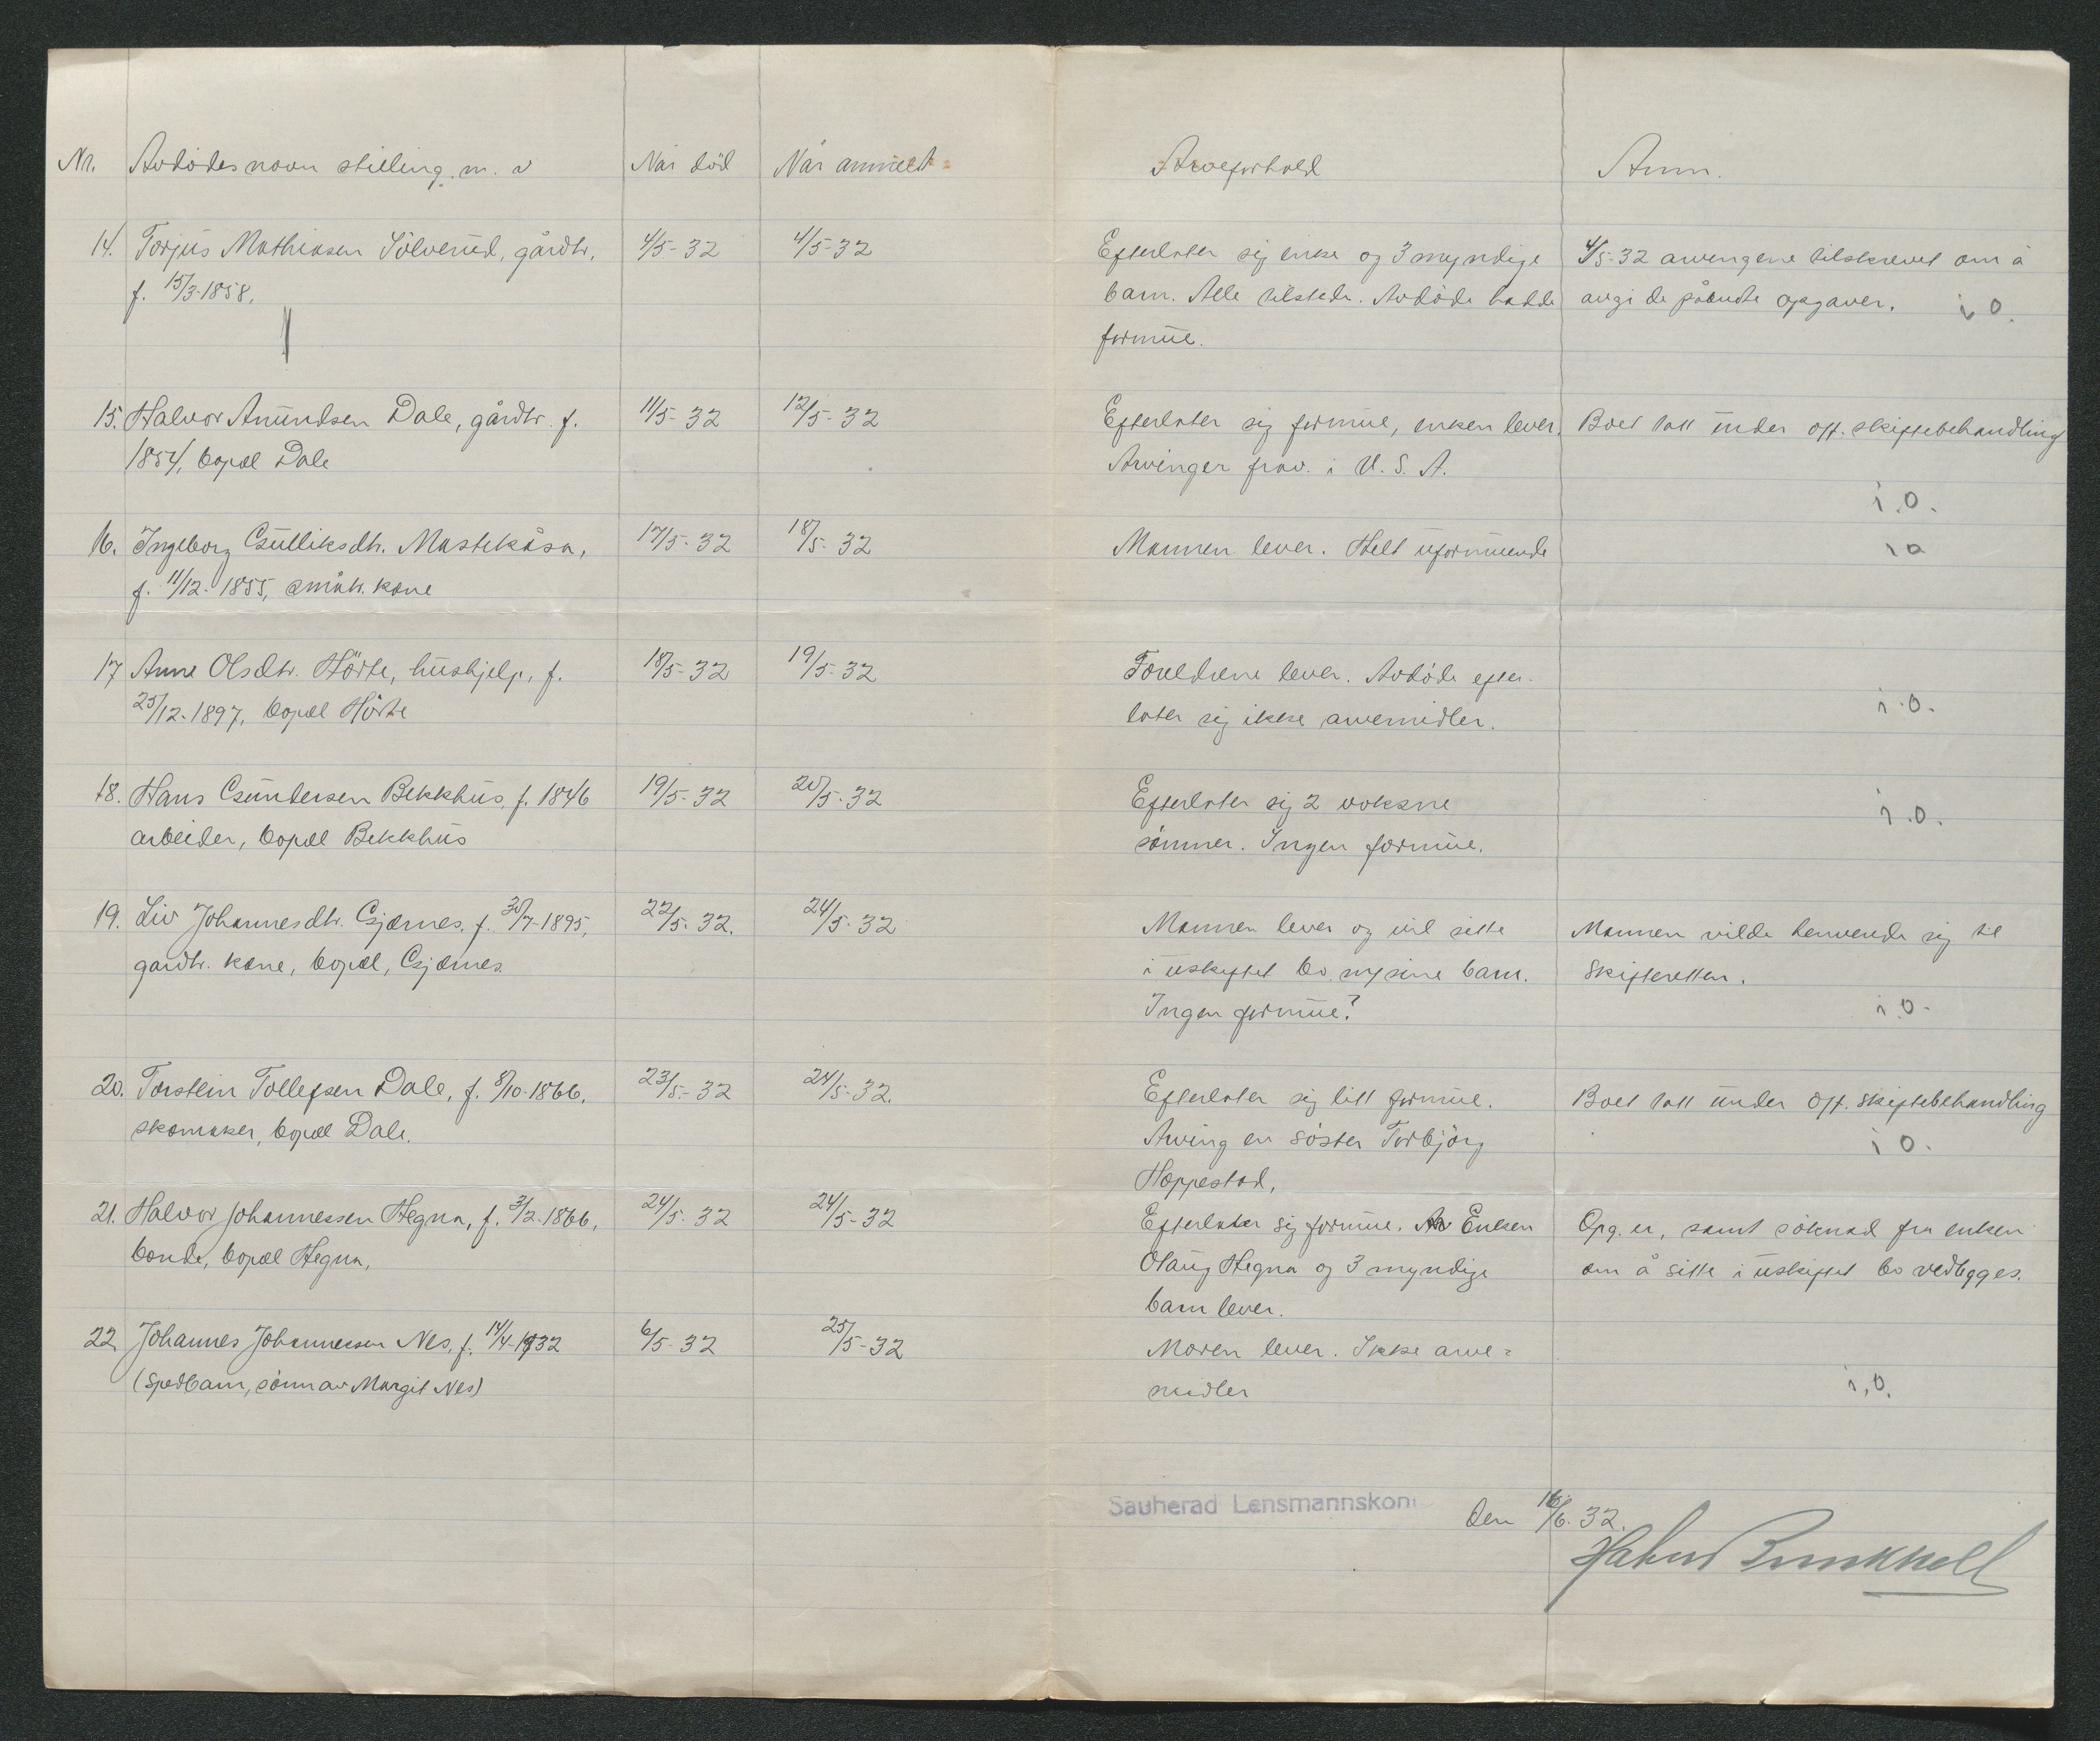 Nr. Avdödes navn stilling m. v Når död Når anmeldt Arveforhold Anm.
14. Torjus Mathiasen Sölverud, gårdbr. 4/5-32 4/5-32 Efterlater sig enke og 3 myndige 4/5-32 arvingene tilskrevet om å
f. 15/3-1858. barn. Alle tilstede. Avdöde hadde avgi de påbudte opgaver. i o.
formue.
15. Halvor Amundsen Dale, gårdbr. f. 11/5-32 12/5-32 Efterlater sig formue, enken lever. Boet tatt under off. skiftebehandling
1854, bopæl Dale Arvinger frav. i U. S. A.
i.o.
16. Ingeborg Gulliksdtr. Mastekåsa, 17/5-32 18/5-32 Mannen lever. Helt uformuende i o
f. 11/12-1855, småbr. kone
17 Anne Olsdtr. Hörte, hushjelp, f. 18/5-32 19/5-32 Foreldrene lever. Avdöde efter-
25/12-1897, bopæl Hörte later sig ikke arvemidler. i.o.
18. Hans Gundersen Bekkhus, f. 1846 19/5-32 20/5-32 Efterlater sig 2 voksne i.o.
arbeider, bopæl Bekkhus sönner. Ingen formue.
19. Liv Johannesdtr. Gjernes, f. 30/7-1895, 22/5-32. 24/5-32 Mannen lever og vil sitte Mannen vilde henvende sig til
gardbr. kone, bopæl, Gjernes. i uskiftet bo m/ sine barn. Skifteretten.
Ingen formue? i.o.
20. Torstein Tollefsen Dale, f. 8/10-1866, 23/5-32 24/5-32. Efterlater sig litt formue. Boet tatt under off. skiftebehandling
skomaker, bopæl Dale. Arving en söster Torbjörg i o.
Hoppestad,
21. Halvor Johannessen Hegna, f. 3/2-1866, 24/5-32 24/5-32 Efterlater sig formue. Enken Opg. er, samt söknad fra enken
bonde, bopæl Hegna, Olaug Hegna og 3 myndige om å sitte i uskiftet bo vedlegges.
barn lever.
22 Johannes Johannessen Nes, f. 14/4-1932 6/5-32 25/5-32 Moren lever. Ikke arve=
(Spedbarn, sönn av Margit Nes) midler i.o.
Sauherad Lensmannskon den 16/6-32.